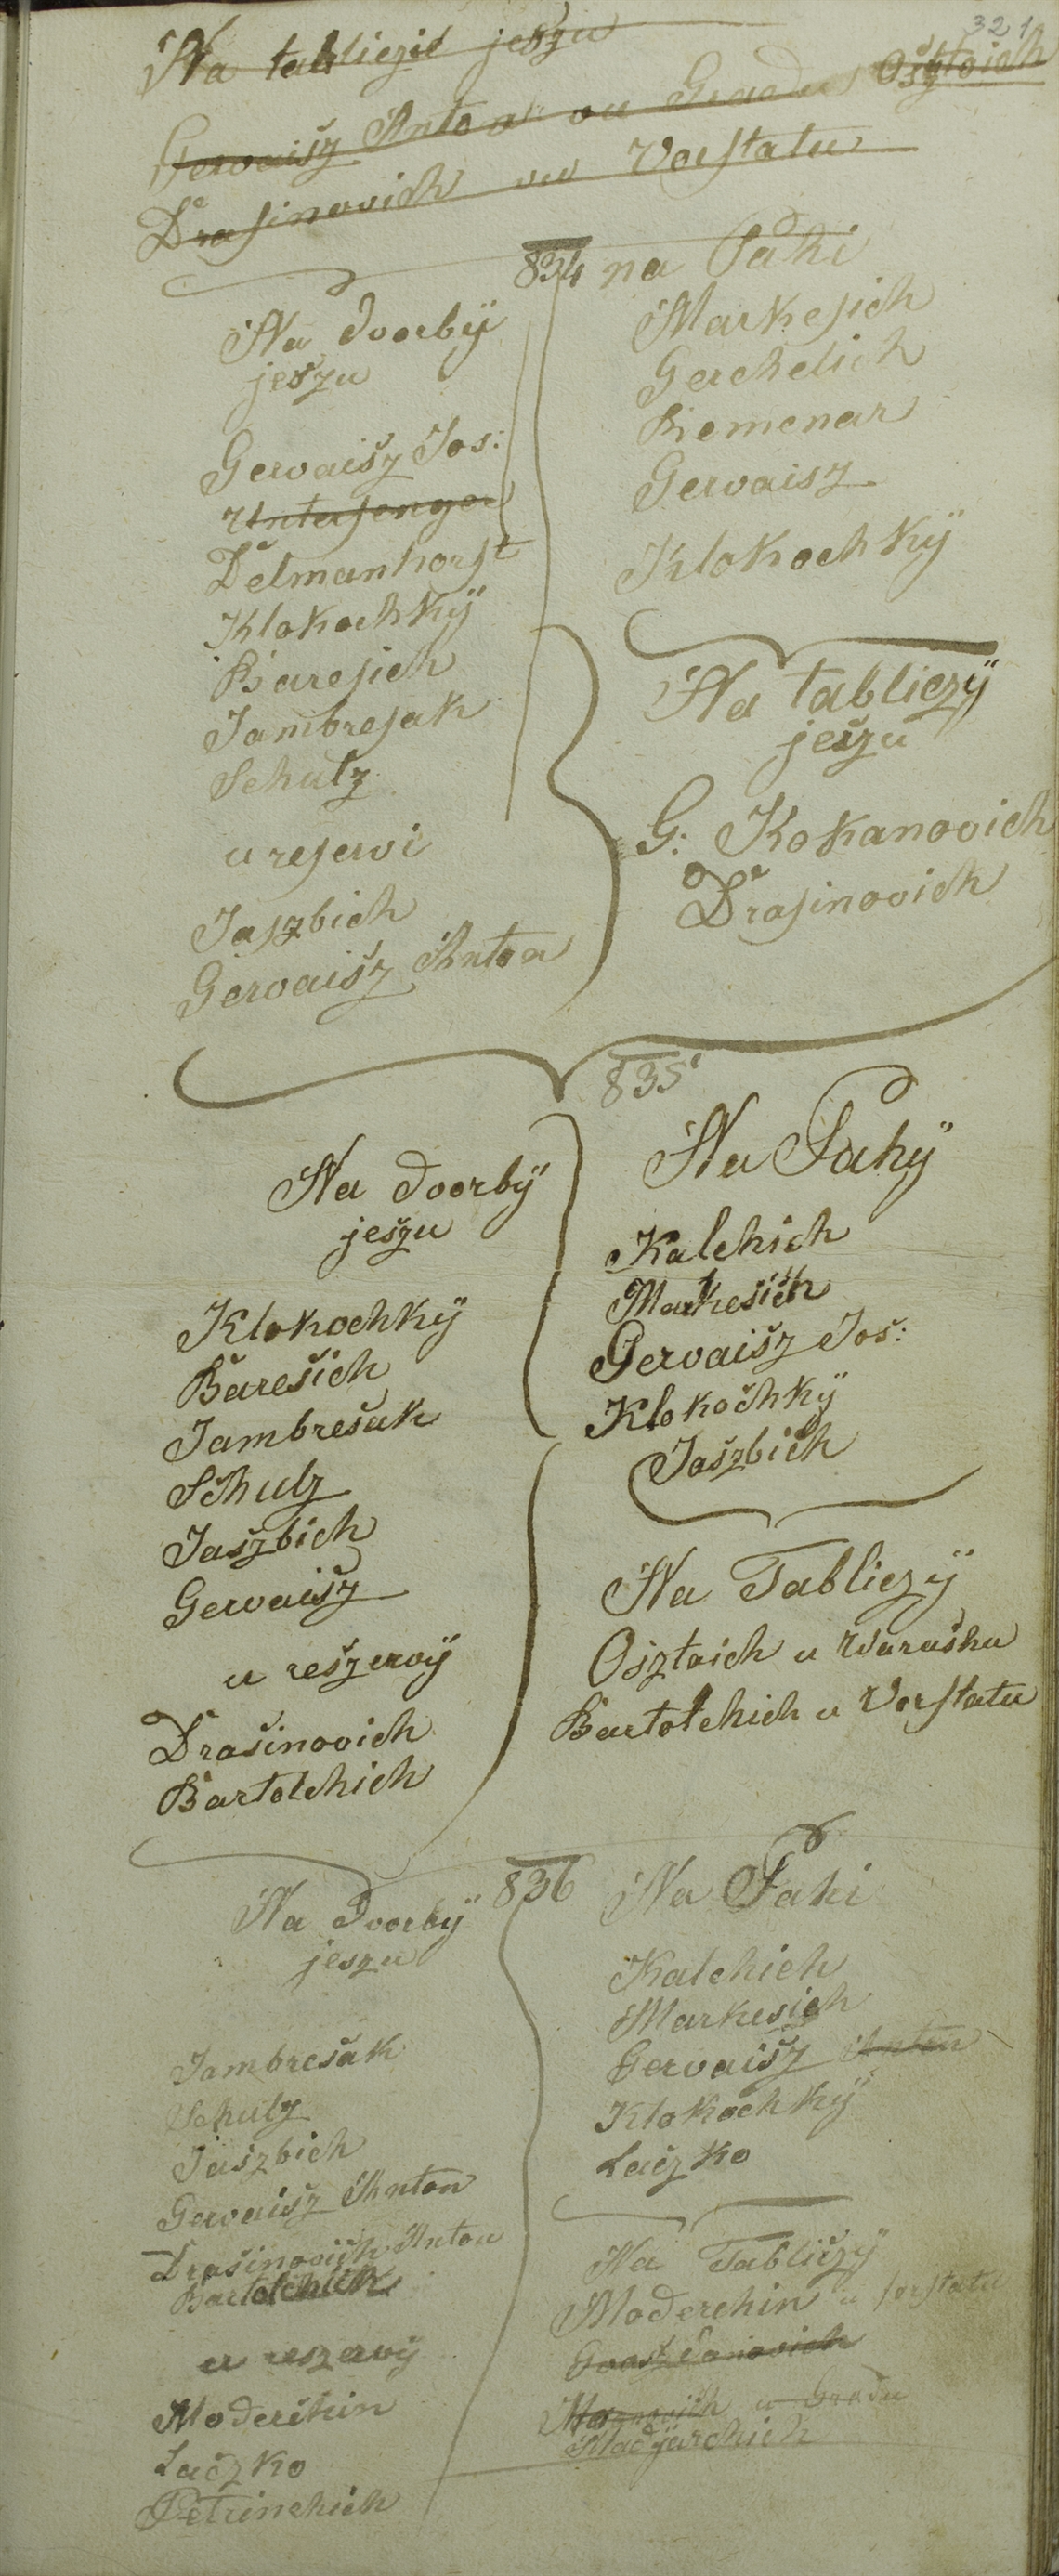 321
Na tabliczie jeszu
Gervaisz Anton vu Gradu Osztoich
Drasinovich vu Vorstatu
834
Na dvorbÿ
jeszu
Gervaisz Jos:
Untersenger
Delmanhorst
Klokochkÿ
Baresich
Jambresak
Schulz
u reservi
Jaszbich
Gervaisz Anton
na Paki
Markesich
Gerchelich
Remenar
Gervaisz
Klokochkÿ
Na tabliczÿ
jeszu
G: Kokanovich
Drasinovich
835
Na dvorbÿ
jeszu
Klokochkÿ
Baresich
Jambresak
Schulz
Jaszbich
Gervaisz
u reszervÿ
Drasinovich
Bartolchich
Na Pakÿ
Kalchich
Markesich
Gervaisz Jos:
Klokochkÿ
Jaszbich
Na Tabliczÿ
Osztoich u Varashu
Bartolchich u Vorstatu
836
Na Dvorbÿ
jeszu
Jambresak
Schulz
Jaszbich
Gervaisz Anton
Drasinovich Anton
Bartolchich
u reszervÿ
Moderchin
Laczko
Petrinchich
Na Paki
Kalchich
Markesich
Gervaisz Anton
Klokochkÿ
Laczko
Na Tabliczÿ
Moderchin u forstatu
u Gradu